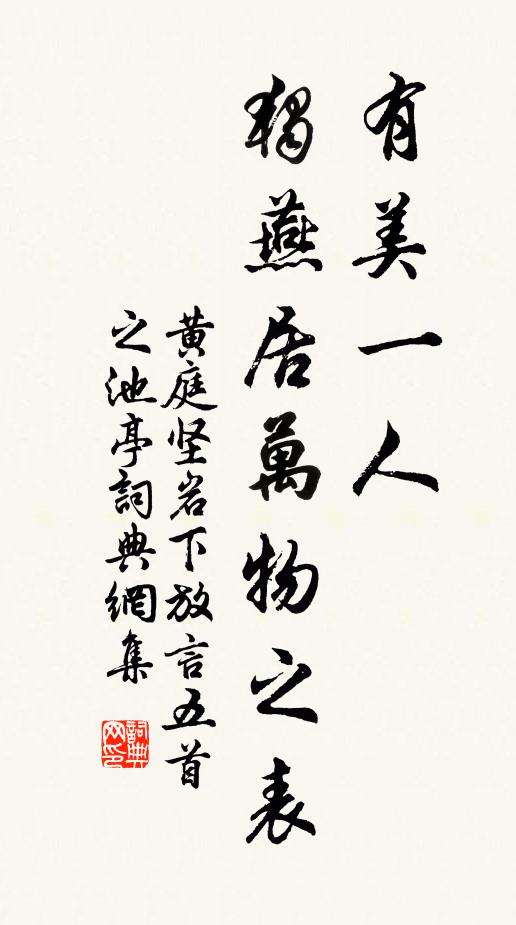 有美一人
獨燕居萬物之表
黄庭坚岩下放言五首
之池亭詞典網集
詞典
网印